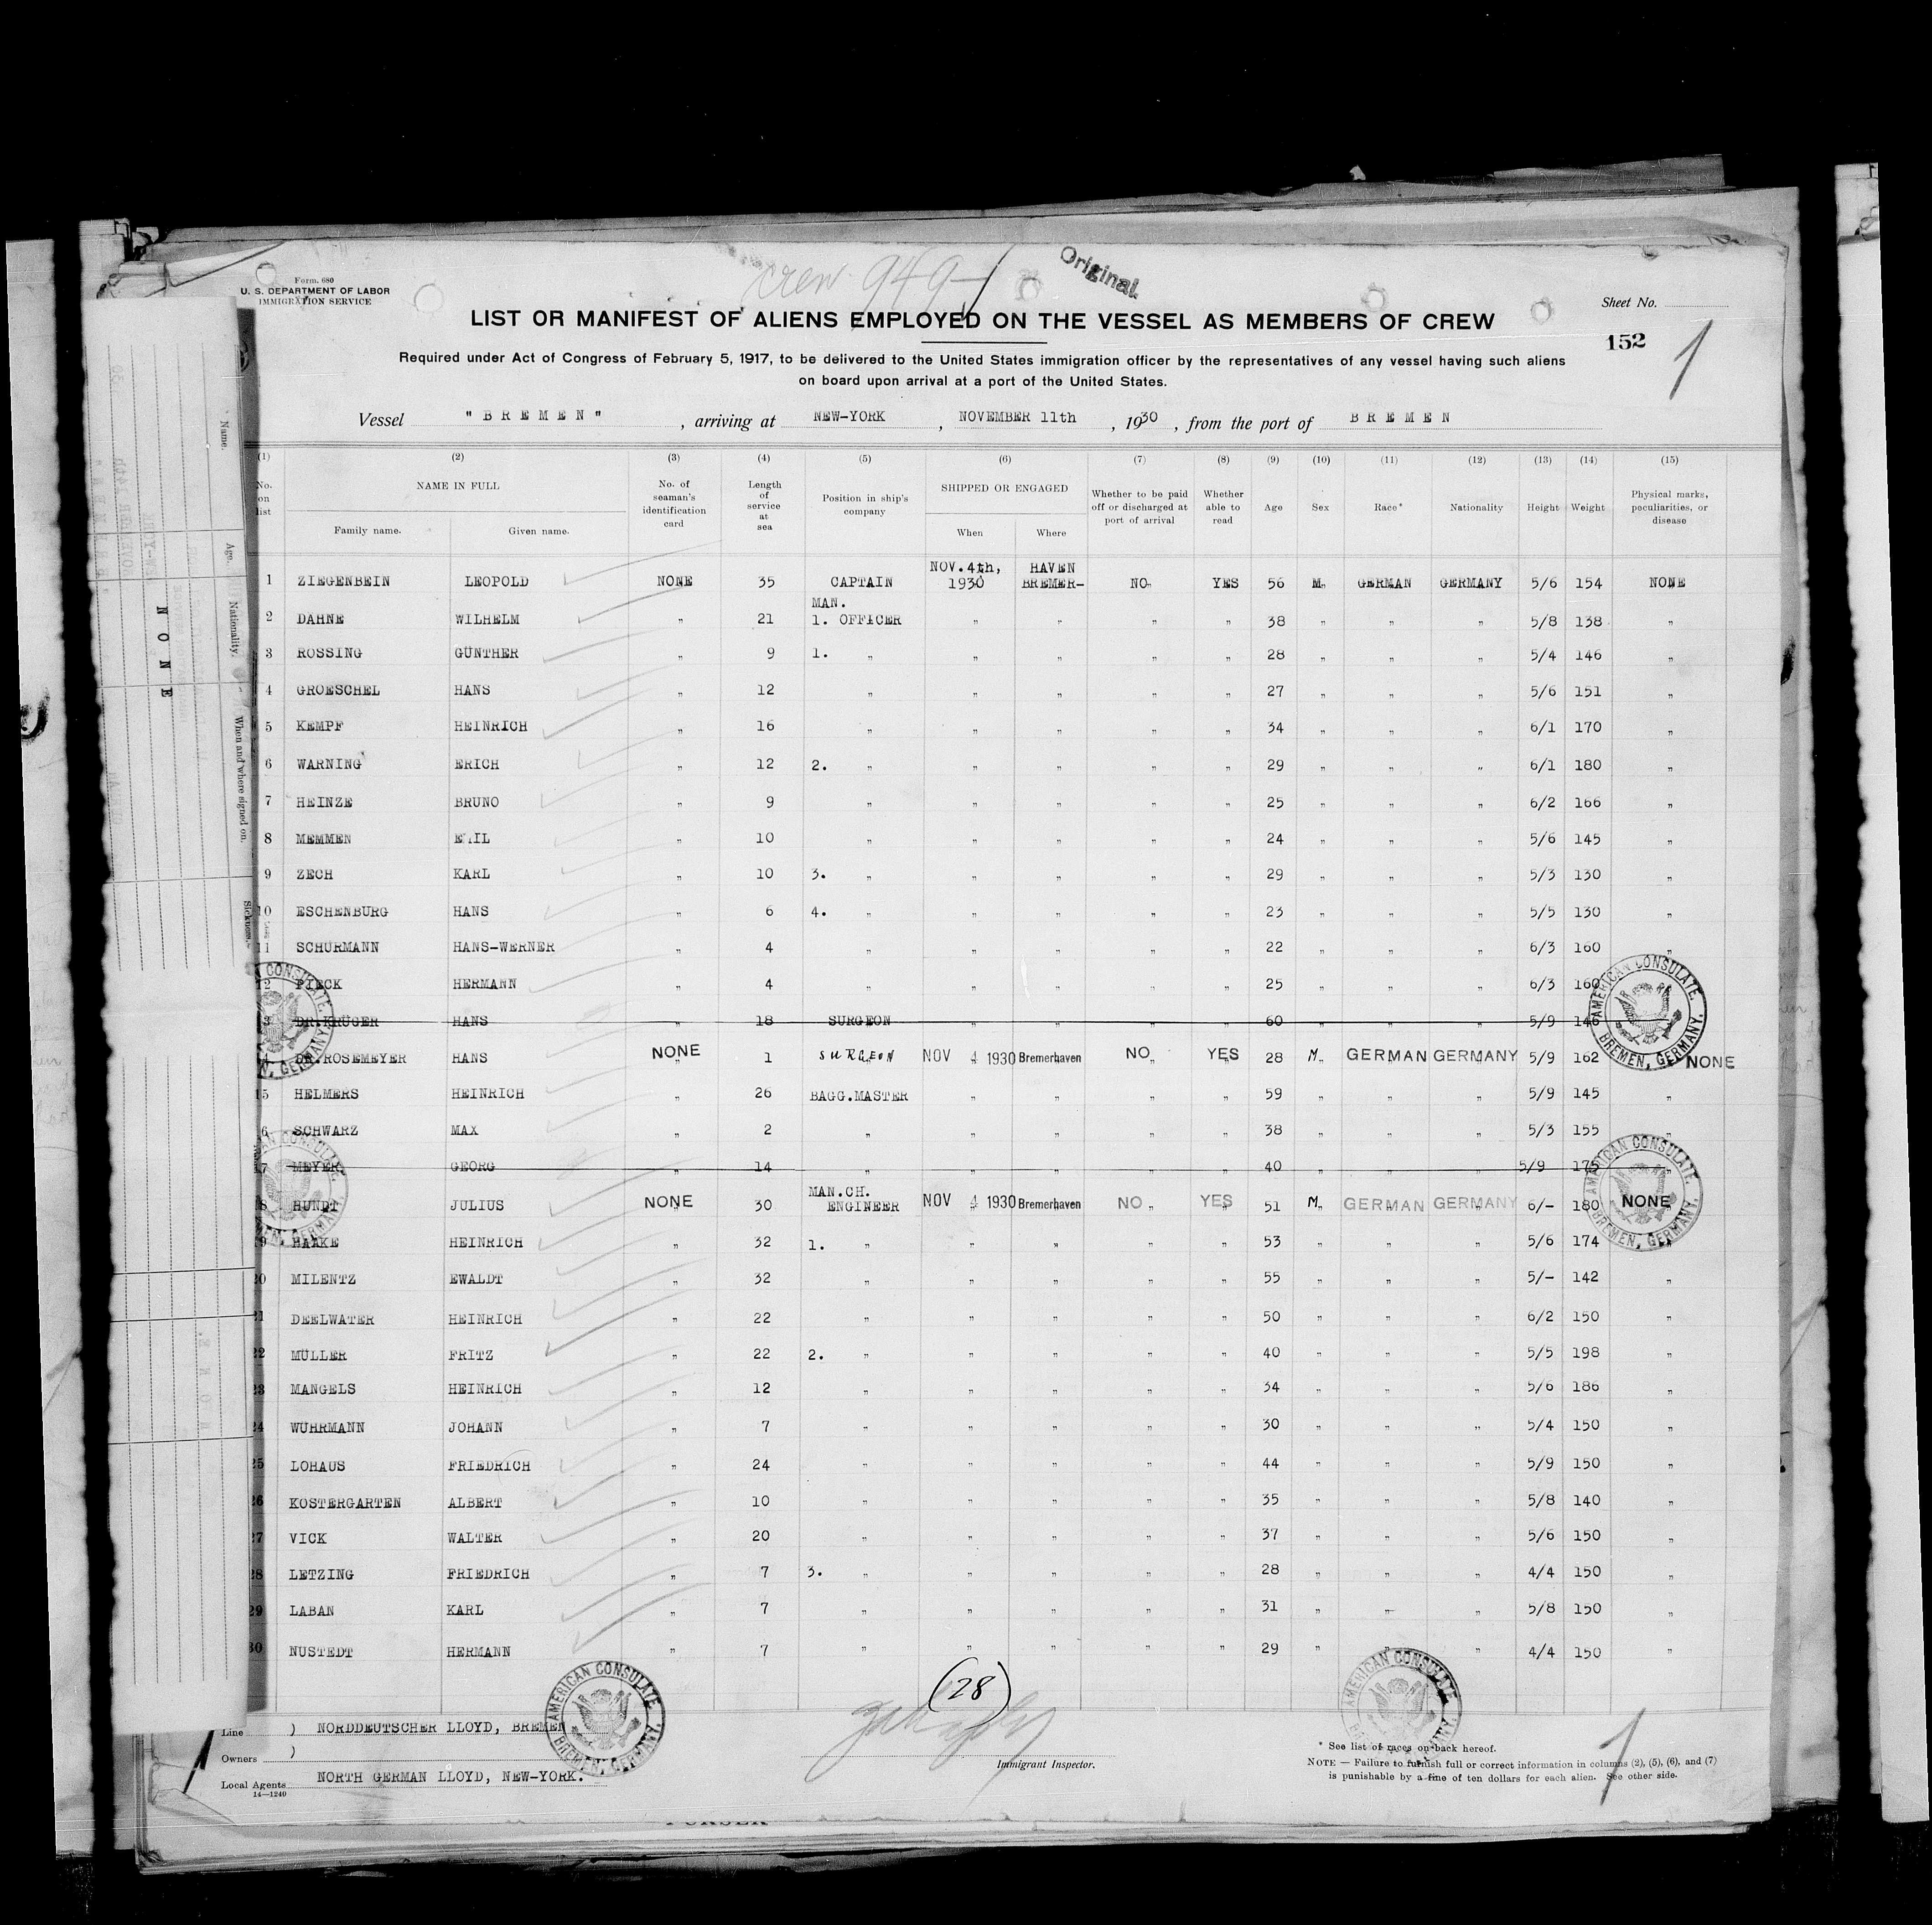 Form. 680
U. S. DEPARTMENT OF LABOR
IMMIGRATION SERVICE
crew 949
Original
Sheet No.
152
1
LIST OR MANIFEST OF ALIENS EMPLOYED ON THE VESSEL AS MEMBERS OF CREW
Required under Act of Congress of February 5, 1917, to be delivered to the United States immigration officer by the representatives of any vessel having such aliens
on board upon arrival at a port of the United States.
Vessel "BREMEN", arriving at NEW-YORK, NOVEMBER 11th, 1930, from the port of BREMEN
(1) (2) (3) (4) (5) (6) (7) (8) (9) (10) (11) (12) (13) (14) (15)
No. on list NAME IN FULL Family name. Given name. No. of seaman's identification card Length of service at sea Position in ship's company SHIPPED OR ENGAGED When Where Whether to be paid off or discharged at port of arrival Whether able to read Age Sex Race* Nationality Height Weight Physical marks, peculiarities, or disease
1 ZIEGENBEIN LEOPOLD NONE 35 CAPTAIN NOV.4th, 1930 HAVEN BREMER- NO YES 56 M. GERMAN GERMANY 5/6 154 NONE
2 DAHNE WILHELM " 21 MAN. 1. OFFICER " " " " 38 " " " 5/8 138 "
3 ROSSING GUNTHER " 9 1. " " " " " 28 " " " 5/4 146 "
4 GROESCHEL HANS " 12 " " " " " 27 " " " 5/6 151 "
5 KEMPF HEINRICH " 16 " " " " " 34 " " " 6/1 170 "
6 WARNING ERICH " 12 2. " " " " " 29 " " " 6/1 180 "
7 HEINZE BRUNO " 9 " " " " " 25 " " " 6/2 166 "
8 MEMMEN EMIL " 10 " " " " " 24 " " " 5/6 145 "
9 ZECH KARL " 10 3. " " " " " 29 " " " 5/3 130 "
10 ESCHENBURG HANS " 6 4. " " " " " 23 " " " 5/5 130 "
11 SCHURMANN HANS-WERNER " 4 " " " " " 22 " " " 6/3 160 "
12 PIECK HERMANN " 4 " " " " " 25 " " " 6/3 160
13 DR.KRUGER HANS " 18 SURGEON " " " " 60 " " " 5/9
14 DR.ROSEMEYER HANS NONE 1 SURGEON NOV 4 1930 Bremerhaven NO YES 28 M. GERMAN GERMANY 5/9 162 NONE
15 HELMERS HEINRICH " 26 BAGG.MASTER " " " " 59 " " " 5/9 145 "
16 SCHWARZ MAX " 2 " " " " " 38 " " " 5/3 155 "
17 MEYER GEORG " 14 " " " " " 40 " " " 5/9 175 "
18 HUNDT JULIUS NONE 30 MAN.CH. ENGINEER NOV 4 1930 Bremerhaven NO YES 51 M. GERMAN GERMANY 6/- 180 NONE
19 HAAKE HEINRICH " 32 1. " " " " " 53 " " " 5/6 174 "
20 MILENTZ EWALDT " 32 " " " " " 55 " " " 5/- 142 "
21 DEELWATER HEINRICH " 22 " " " " " 50 " " " 6/2 150 "
22 MULLER FRITZ " 22 2. " " " " " 40 " " " 5/5 198 "
23 MANGELS HEINRICH " 12 " " " " " 34 " " " 5/6 186 "
24 WUHRMANN JOHANN " 7 " " " " " 30 " " " 5/4 150 "
25 LOHAUS FRIEDRICH " 24 " " " " " 44 " " " 5/9 150 "
26 KOSTERGARTEN ALBERT " 10 " " " " " 35 " " " 5/8 140 "
27 VICK WALTER " 20 " " " " " 37 " " " 5/6 150 "
28 LETZING FRIEDRICH " 7 3. " " " " " 28 " " " 4/4 150 "
29 LABAN KARL " 7 " " " " " 31 " " " 5/8 150 "
30 NUSTEDT HERMANN " 7 " " " " " 29 " " " 4/4 150 "
AMERICAN CONSULATE. BREMEN, GERMANY.
AMERICAN CONSULATE. BREMEN, GERMANY.
AMERICAN CONSULATE. BREMEN, GERMANY.
AMERICAN CONSULATE. BREMEN, GERMANY.
AMERICAN CONSULATE. BREMEN, GERMANY.
AMERICAN CONSULATE. BREMEN, GERMANY.
(28)
Line ) NORDDEUTSCHER LLOYD, BREMEN
Owners )
Local Agents NORTH GERMAN LLOYD, NEW-YORK.
14—1240
Immigrant Inspector.
* See list of races on back hereof.
NOTE — Failure to furnish full or correct information in columns (2), (5), (6), and (7)
is punishable by a fine of ten dollars for each alien. See other side.
1
PURSER
Name.
Age.
Nationality.
When and where signed on.
Sickness.
NONE